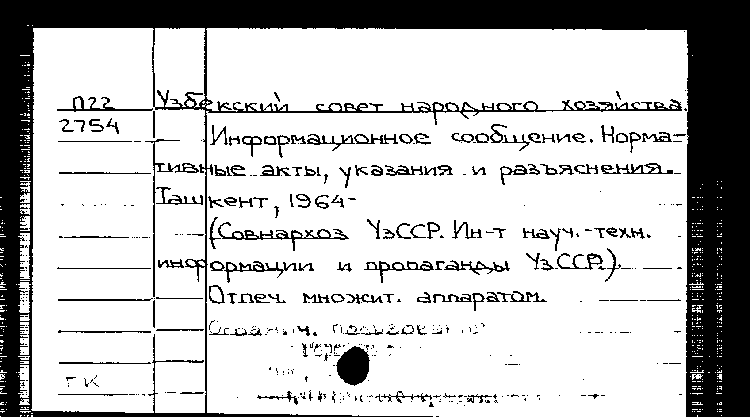 П22 Узбекский совет народного хозяйства
2754 Информационное сообщение. Норма-
тивные акты, указания и разъяснения.
Ташкент, 1964-
(Совнархоз УзССР. Ин-т науч.-техн.
информации и пропаганды УзССР.).
Отпеч. множит. аппаратом.
ГК